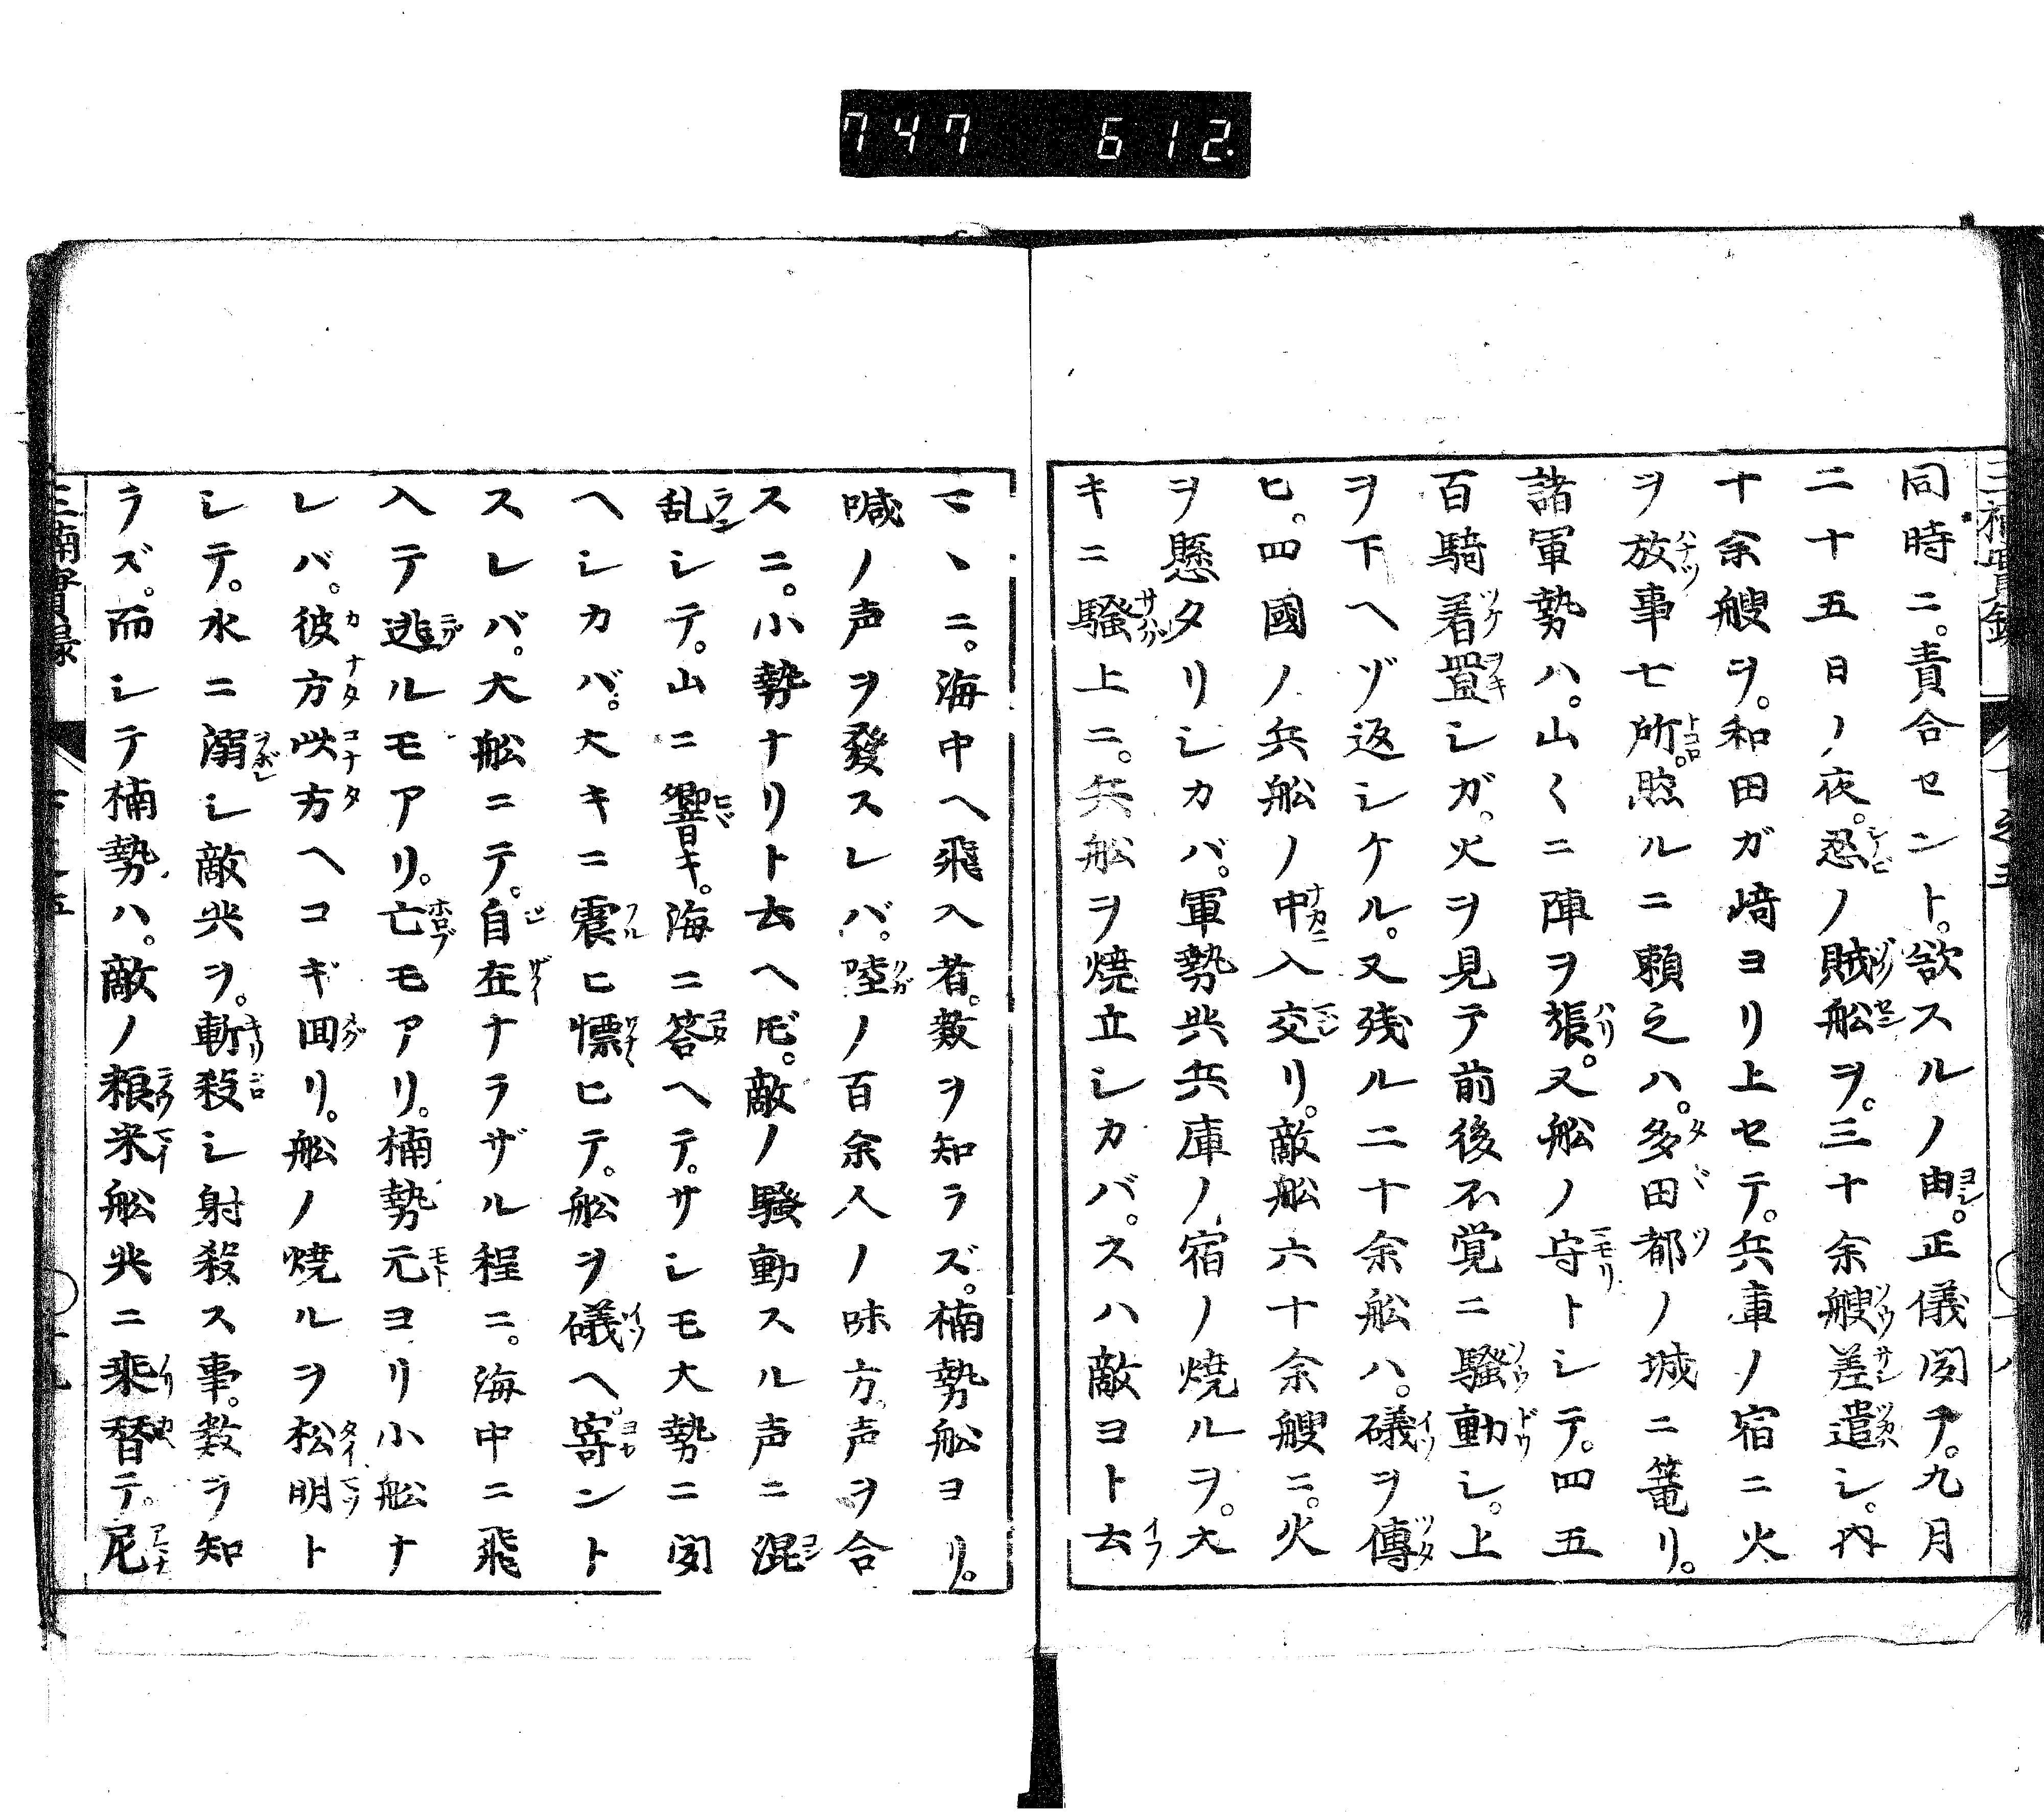 747 612.
同時ニ。責合セント。欲スルノ由。正儀聞テ。九月
二十五日ノ夜。忍ノ賊船ヲ。三十余艘差遣シ。内
十余艘ヲ。和田ガ﨑ヨリ上セテ。兵庫ノ宿ニ火
ヲ放事七所。然ルニ頼之ハ。多田都ノ城ニ篭リ。
諸軍勢ハ。山〱ニ陣ヲ張。又船ノ守トシテ。四五
百騎着置シガ。火ヲ見テ前後不覚ニ騒動シ。上
ヲ下ヘヅ返シケル。又残ル二十余船ハ。礒ヲ傳
ヒ。四國ノ兵船ノ中入交リ。敵船六十余艘ニ。火
ヲ懸タリシカバ。軍勢共兵庫ノ宿ノ焼ルヲ。大
キニ騒上ニ。兵船ヲ焼立シカバ。スハ敵ヨト云
マヽニ。海中ヘ飛入者。数ヲ知ラズ。楠勢船ヨリ。
喊ノ声ヲ發スレバ。陸ノ百余人ノ味方。声ヲ合
スニ。小勢ナリト云ヘ𪜈。敵ノ騒動スル声ニ混
乱シテ。山ニ響キ。海ニ答ヘテ。サシモ大勢ニ聞
ヘシカバ。大キニ震ヒ慄ヒテ。船ヲ礒ヘ。寄ント
スレバ。大船ニテ。自在ナラザル程ニ。海中ニ飛
入テ逃ルモアリ。亡モアリ。楠勢元ヨリ小船ナ
レバ。彼方此方ヘコギ回リ。船ノ焼ルヲ松明ト
シテ。水ニ溺レ敵共ヲ。斬殺シ射殺ス事。数ヲ知
ラズ。而シテ楠勢ハ。敵ノ粮米船共ニ乗替テ。尼
三楠實録